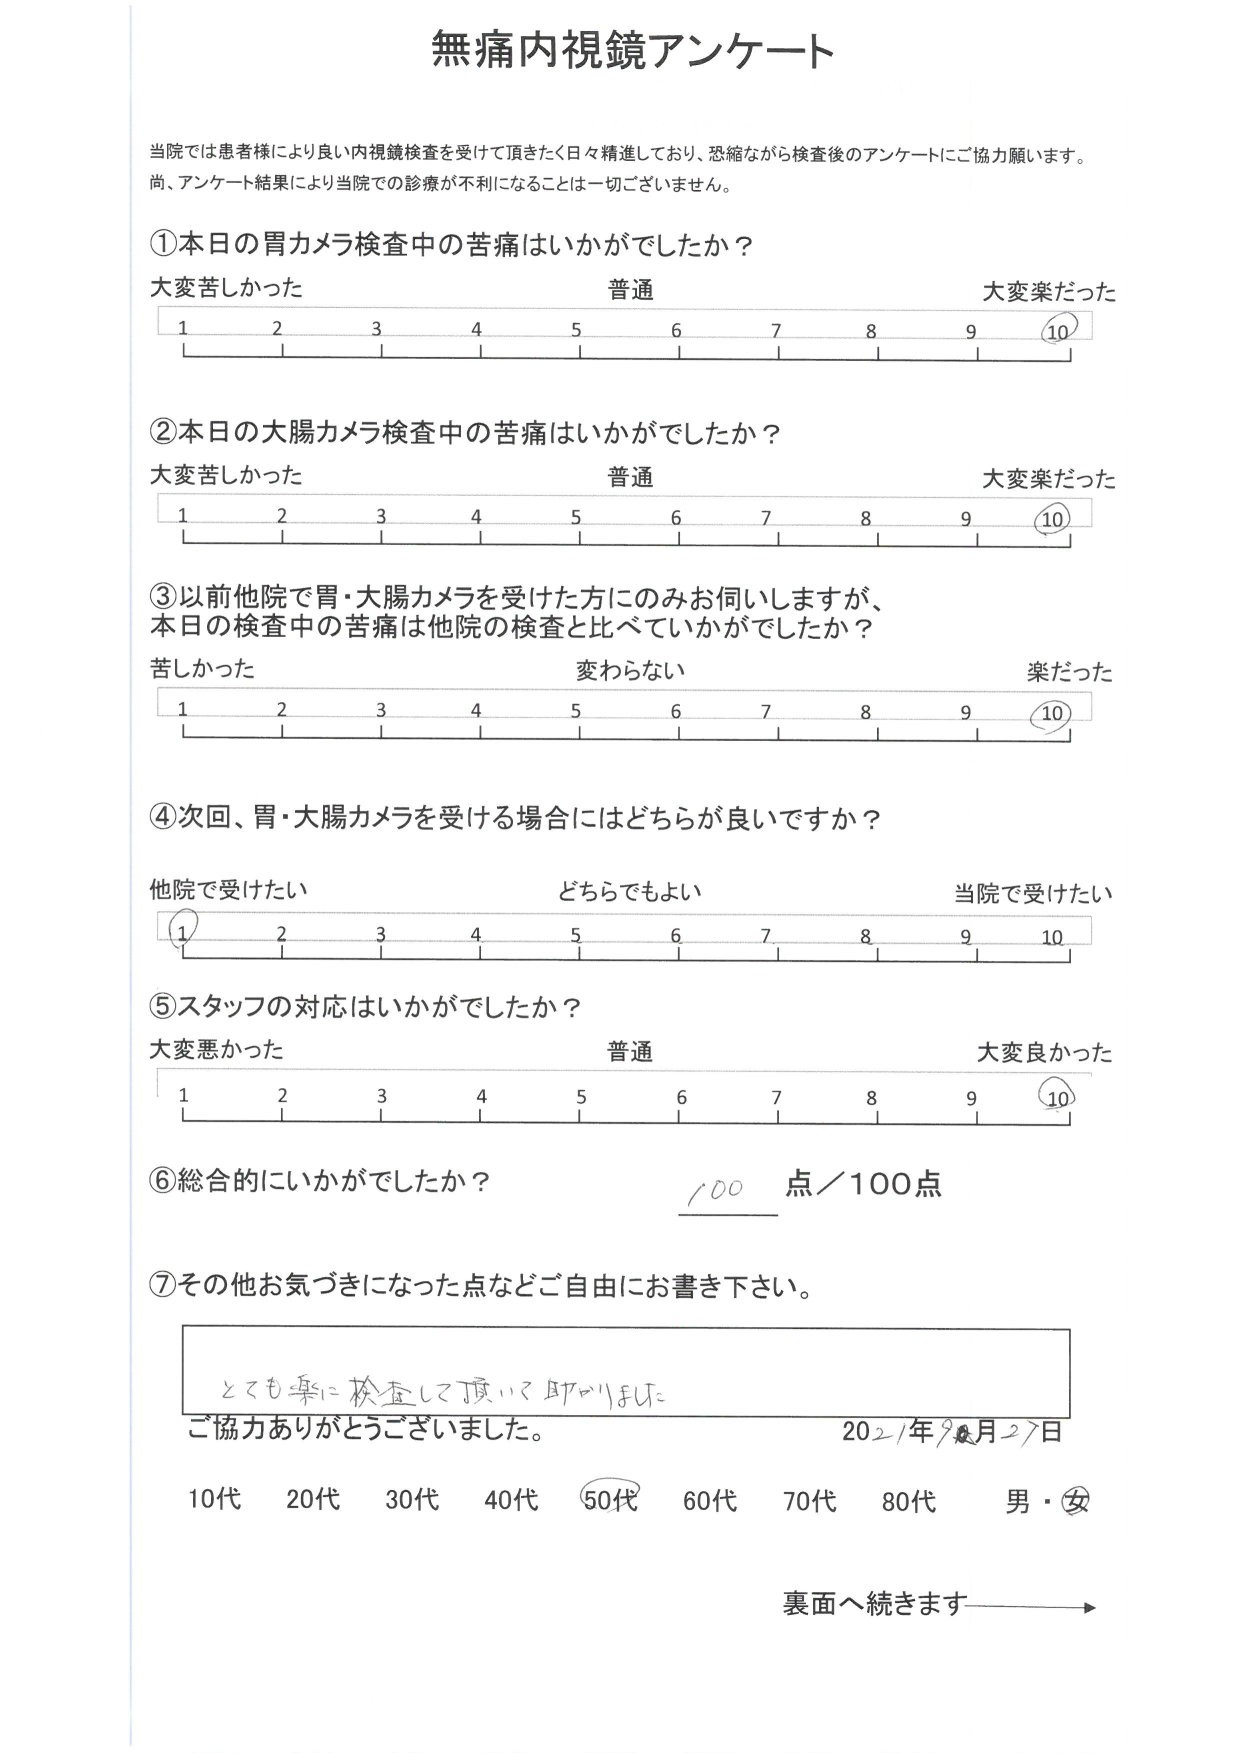 無痛内視鏡アンケート
当院では患者様により良い内視鏡検査を受けて頂きたく日々精進しており、恐縮ながら検査後のアンケートにご協力願います。
尚、アンケート結果により当院での診療が不利になることは一切ございません。
①本日の胃カメラ検査中の苦痛はいかがでしたか？
大変苦しかった 普通 大変楽だった
1 2 3 4 5 6 7 8 9 10
②本日の大腸カメラ検査中の苦痛はいかがでしたか？
大変苦しかった 普通 大変楽だった
1 2 3 4 5 6 7 8 9 10
③以前他院で胃・大腸カメラを受けた方にのみお伺いしますが、
本日の検査中の苦痛は他院の検査と比べていかがでしたか？
苦しかった 変わらない 楽だった
1 2 3 4 5 6 7 8 9 10
④次回、胃・大腸カメラを受ける場合にはどちらが良いですか？
他院で受けたい どちらでもよい 当院で受けたい
1 2 3 4 5 6 7 8 9 10
⑤スタッフの対応はいかがでしたか？
大変悪かった 普通 大変良かった
1 2 3 4 5 6 7 8 9 10
⑥総合的にいかがでしたか？ 100 点／100点
⑦その他お気づきになった点などご自由にお書き下さい。
とても楽に検査して頂いて助かりました
ご協力ありがとうございました。 2021年9月27日
10代 20代 30代 40代 50代 60代 70代 80代 男・女
裏面へ続きます